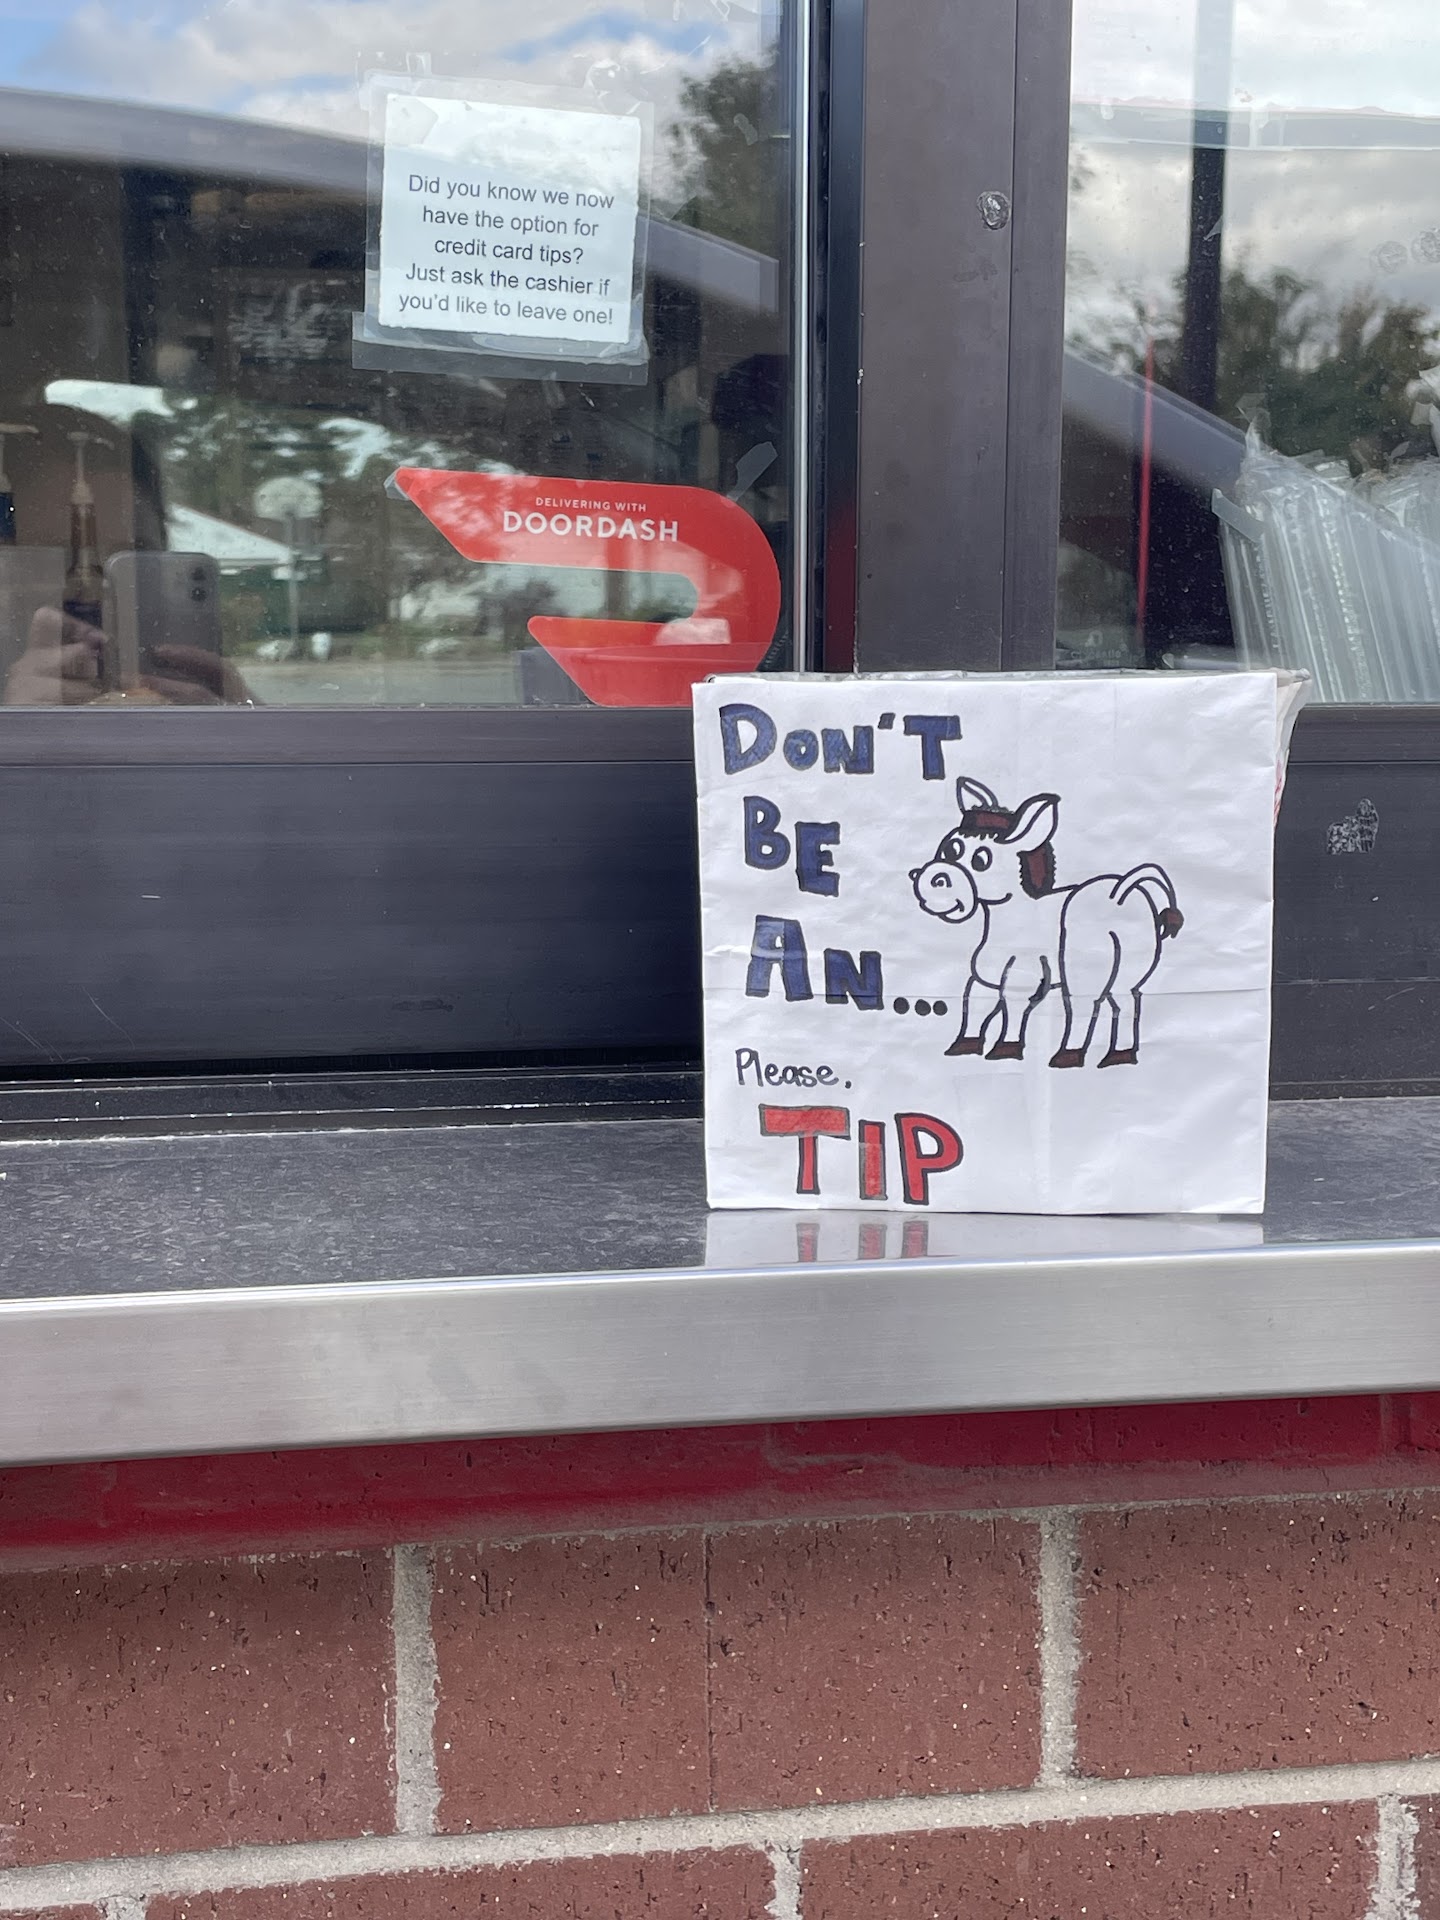 Did you know we now
have the option for
credit card tips?
Just ask the cashier if
you'd like to leave one!
DELIVERING WITH
DOORDASH
DON'T
BE
AN...
Please.
TIP